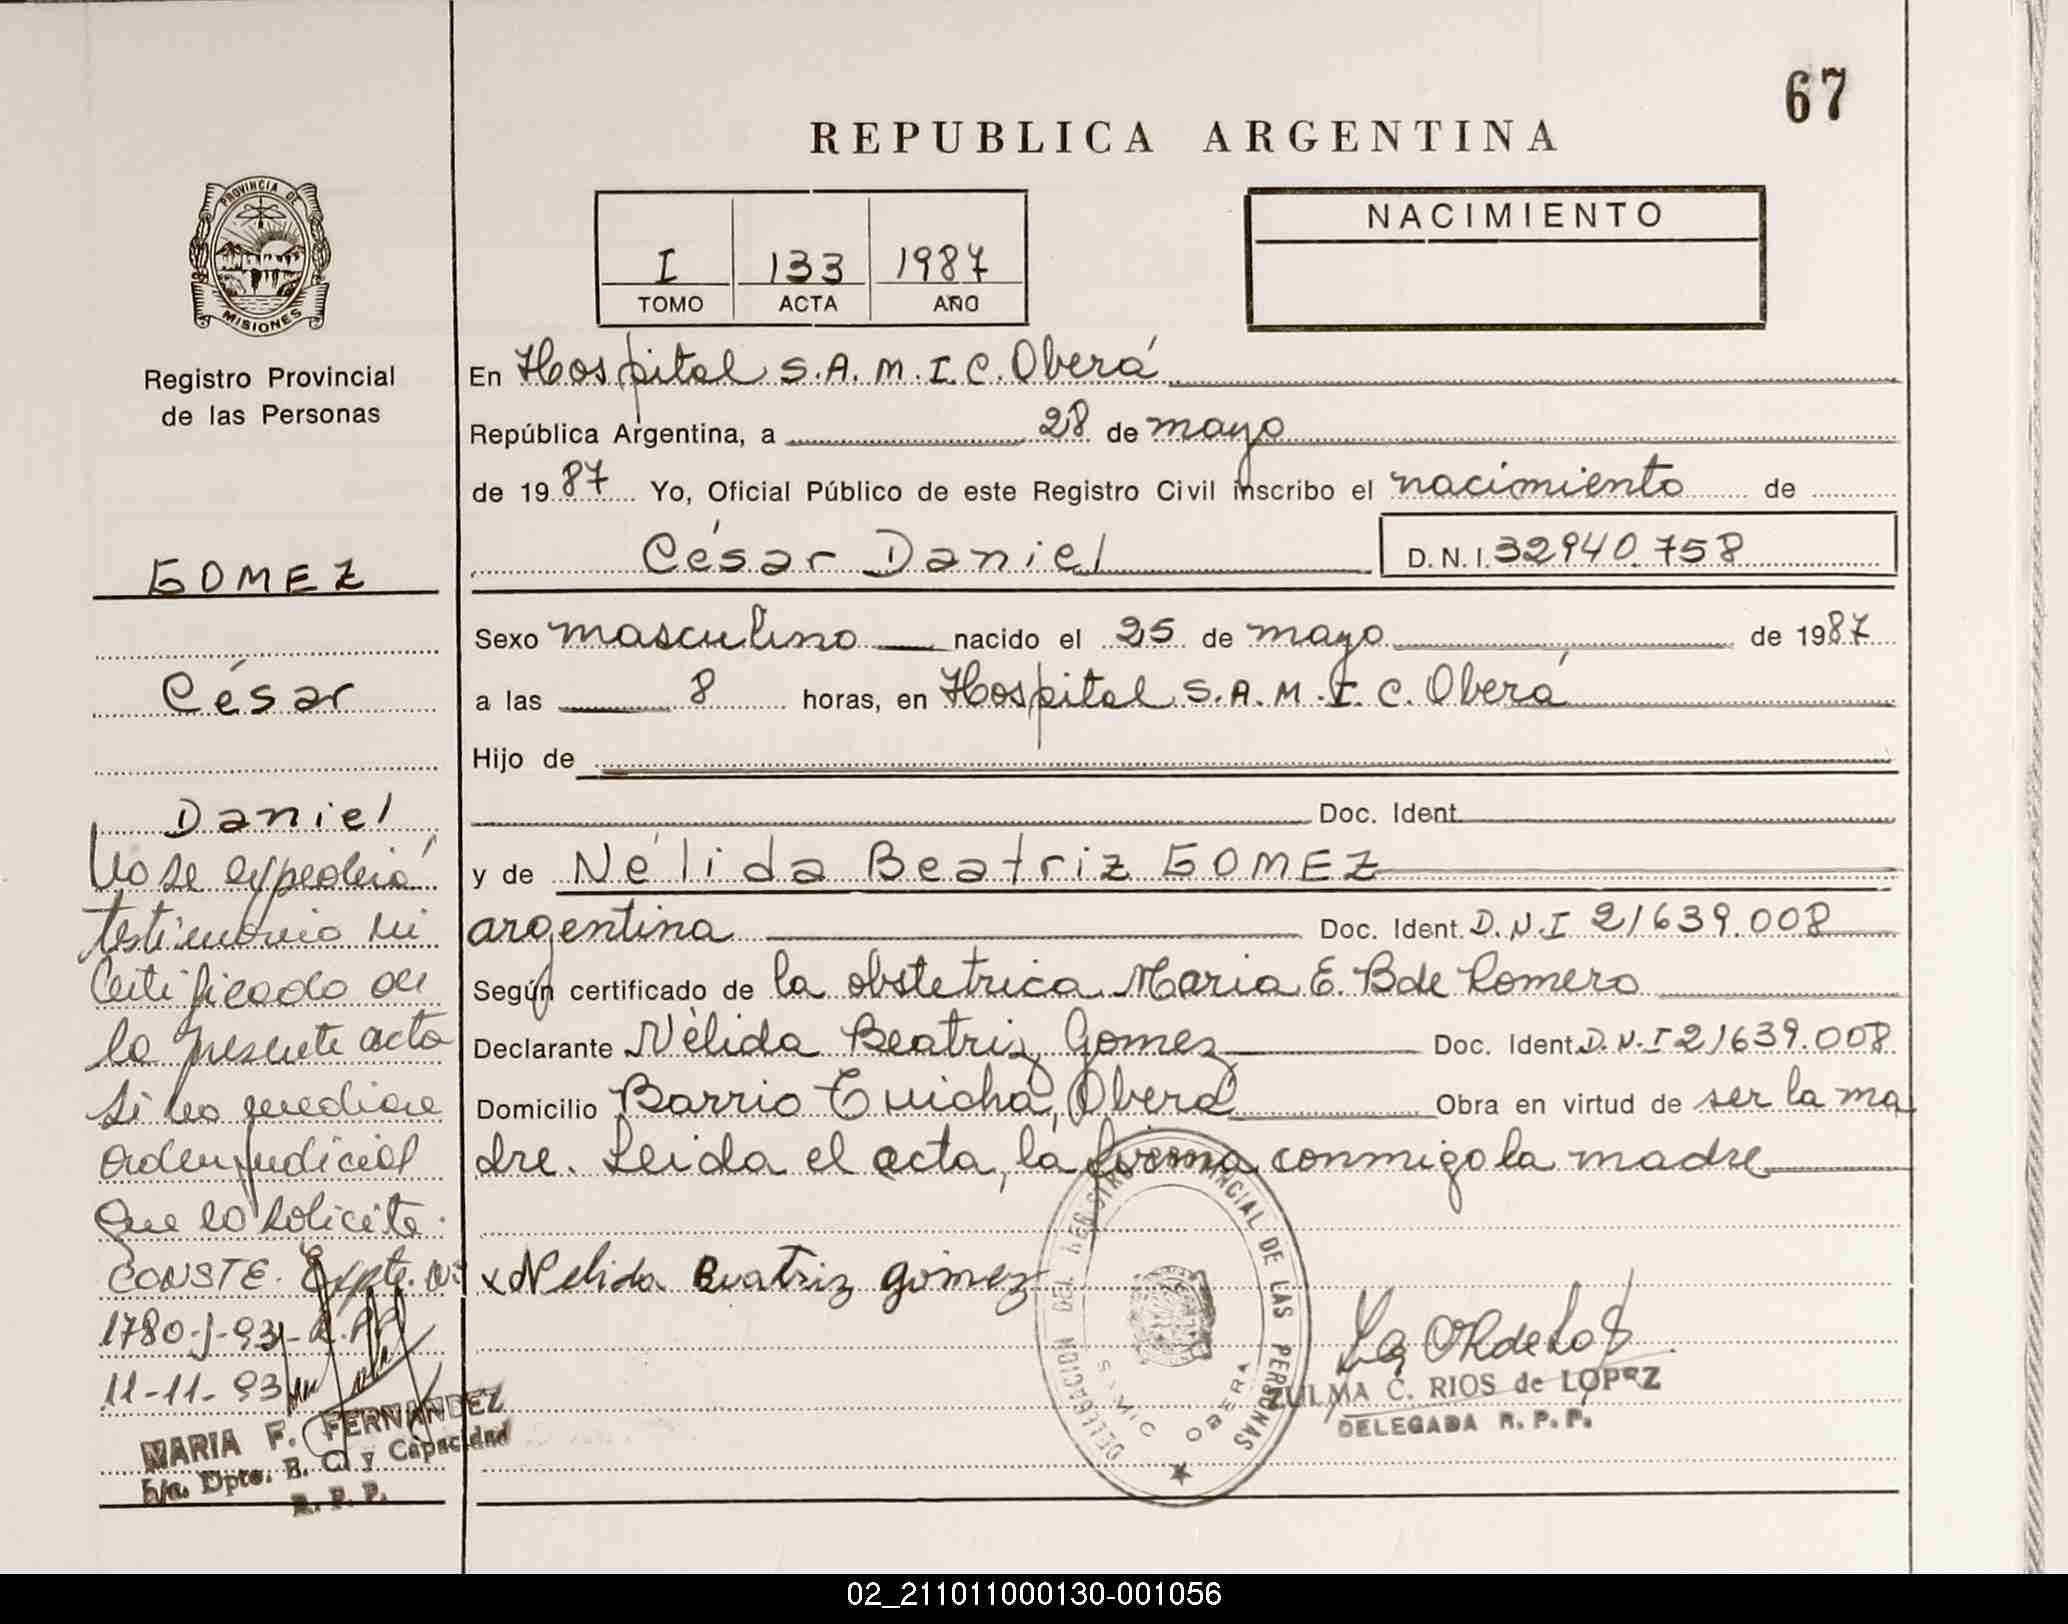 67
REPUBLICA ARGENTINA
PROVINCIA DE
MISIONES
I 133 1987
TOMO ACTA AÑO
NACIMIENTO
Registro Provincial
de las Personas
GOMEZ
César
Daniel
No se expedirá
testimonio ni
Certificado de
la presente acta
si no mediare
orden judicial
que lo solicite.
CONSTE. Expte. Nº
1780-J-93-
11-11-93
MARIA F. FERNANDEZ
Dpto. E. C. y Capacidad
R. P. P.
En Hospital S.A.M.I.C. Oberá
República Argentina, a 28 de mayo
de 1987 Yo, Oficial Público de este Registro Civil inscribo el nacimiento de
César Daniel D.N.I. 32940.758
Sexo masculino nacido el 25 de mayo de 1987
a las 8 horas, en Hospital S.A.M.I.C. Oberá
Hijo de
Doc. Ident.
y de Nélida Beatriz GOMEZ
argentina Doc. Ident. D.N.I 21639.008
Según certificado de la obstetrica Maria E. B de Romero
Declarante Nélida Beatriz Gomez Doc. Ident. D.N.I 21639.008
Domicilio Barrio Cuicha, Oberá Obra en virtud de ser la ma
dre. Leida el acta, la firma conmigo la madre
x Nelida Beatriz gomez
DELEGACION DEL REGISTRO PROVINCIAL DE LAS PERSONAS
SAMIC OBERA
ZULMA C. RIOS de LOPEZ
DELEGADA R. P. P.
02_211011000130-001056